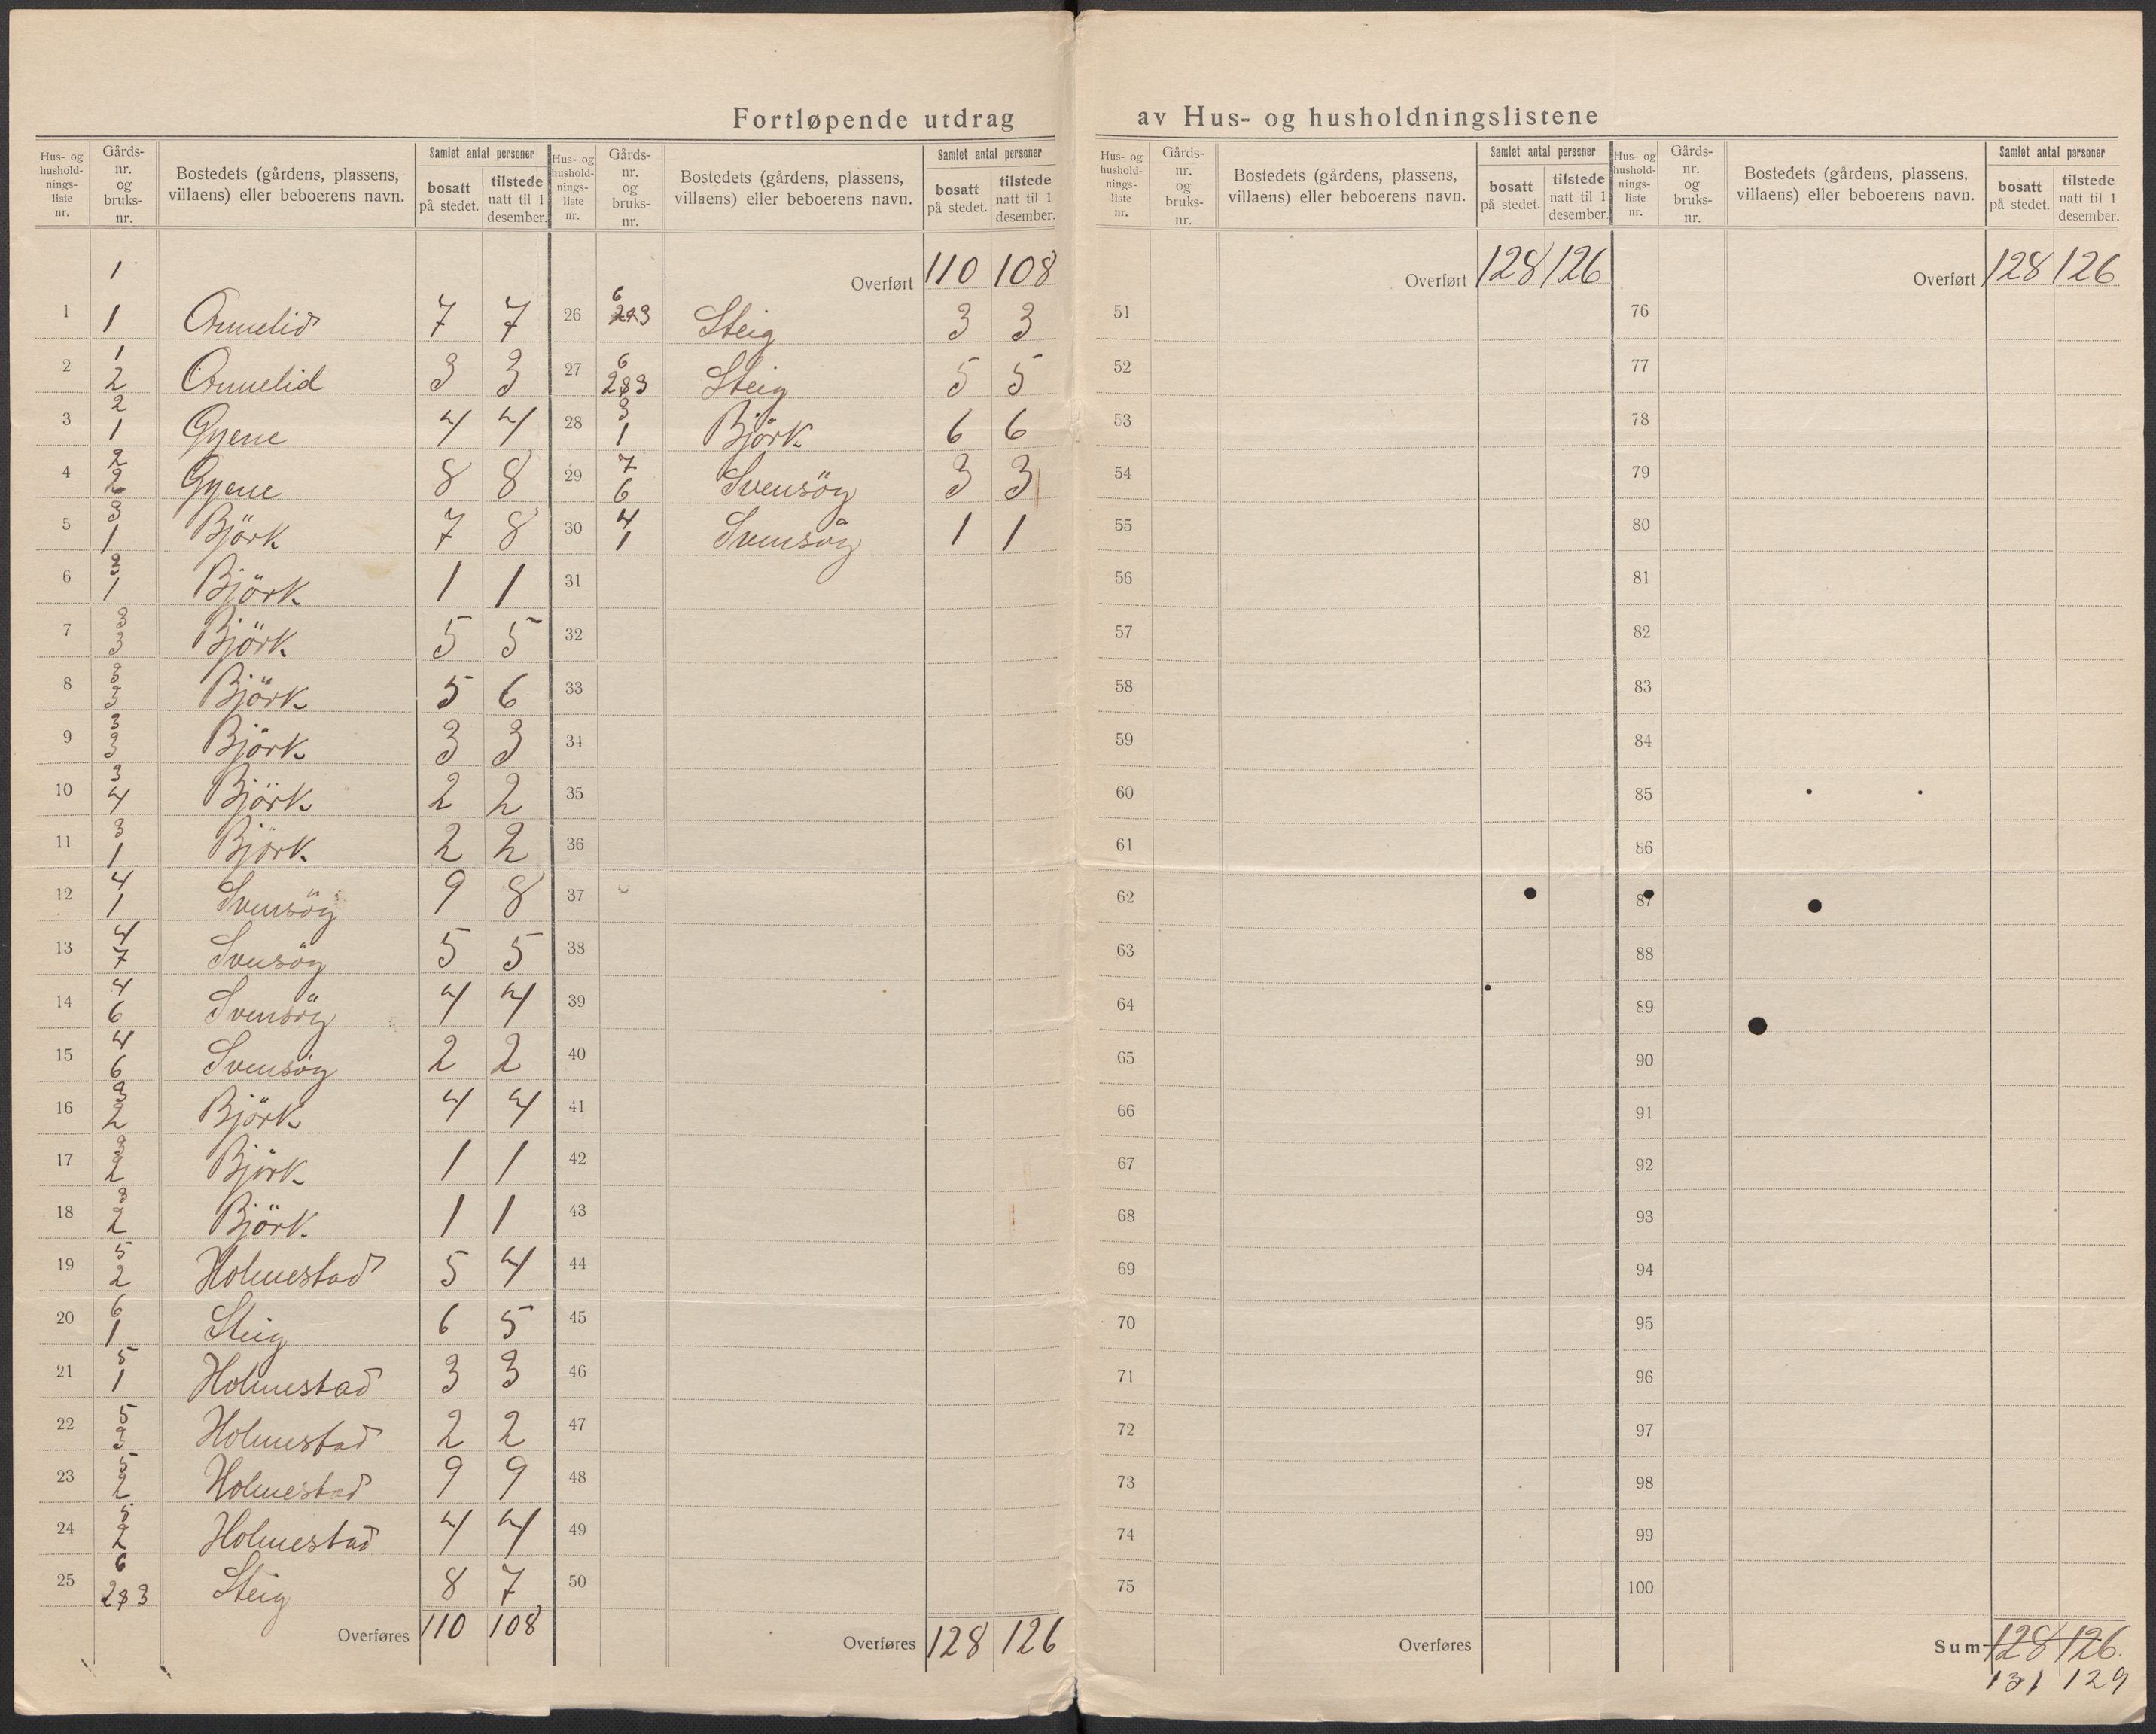 Fortløpende utdrag av Hus- og husholdningslistene
Hus- og hushold-nings-liste nr. | Gårds-nr. og bruks-nr. | Bostedets (gårdens, plassens, villaens) eller beboerens navn. | Samlet antal personer | bosatt på stedet. | tilstede natt til 1 desember.
1 | 1 1 | Ornnelid | 7 | 7
2 | 1 2 | Ornnelid | 3 | 3
3 | 2 1 | Gyene | 4 | 4
4 | 2 2 | Gyene | 8 | 8
5 | 3 1 | Björk | 7 | 8
6 | 3 1 | Björk | 1 | 1
7 | 3 3 | Björk | 5 | 5
8 | 3 3 | Björk | 5 | 6
9 | 3 3 | Björk | 3 | 3
10 | 3 4 | Björk | 2 | 2
11 | 3 1 | Björk | 2 | 2
12 | 4 1 | Svensöy | 9 | 8
13 | 4 7 | Svensöy | 5 | 5
14 | 4 6 | Svensöy | 4 | 4
15 | 4 6 | Svensöy | 2 | 2
16 | 3 2 | Björk | 4 | 4
17 | 3 2 | Björk | 1 | 1
18 | 3 2 | Björk | 1 | 1
19 | 5 2 | Holmestad | 5 | 4
20 | 6 1 | Steig | 6 | 5
21 | 5 1 | Holmestad | 3 | 3
22 | 5 3 | Holmestad | 2 | 2
23 | 5 2 | Holmestad | 9 | 9
24 | 5 2 | Holmestad | 4 | 4
25 | 6 2&3 | Steig | 8 | 7
Overføres 110 | 108
Hus- og hushold-nings-liste nr. | Gårds-nr. og bruks-nr. | Bostedets (gårdens, plassens, villaens) eller beboerens navn. | Samlet antal personer | bosatt på stedet. | tilstede natt til 1 desember.
Overført 110 | 108
26 | 6 2&3 | Steig | 3 | 3
27 | 6 2&3 | Steig | 5 | 5
28 | 3 1 | Björk | 6 | 6
29 | 7 6 | Svensöy | 3 | 3
30 | 4 1 | Svensöy | 1 | 1
31
32
33
34
35
36
37
38
39
40
41
42
43
44
45
46
47
48
49
50
Overføres 128 | 126
Hus- og hushold-nings-liste nr. | Gårds-nr. og bruks-nr. | Bostedets (gårdens, plassens, villaens) eller beboerens navn. | Samlet antal personer | bosatt på stedet. | tilstede natt til 1 desember.
Overført 128 | 126
51
52
53
54
55
56
57
58
59
60
61
62
63
64
65
66
67
68
69
70
71
72
73
74
75
Overføres
Hus- og hushold-nings-liste nr. | Gårds-nr. og bruks-nr. | Bostedets (gårdens, plassens, villaens) eller beboerens navn. | Samlet antal personer | bosatt på stedet. | tilstede natt til 1 desember.
Overført 128 | 126
76
77
78
79
80
81
82
83
84
85
86
87
88
89
90
91
92
93
94
95
96
97
98
99
100
Sum 128 | 126
131 | 129